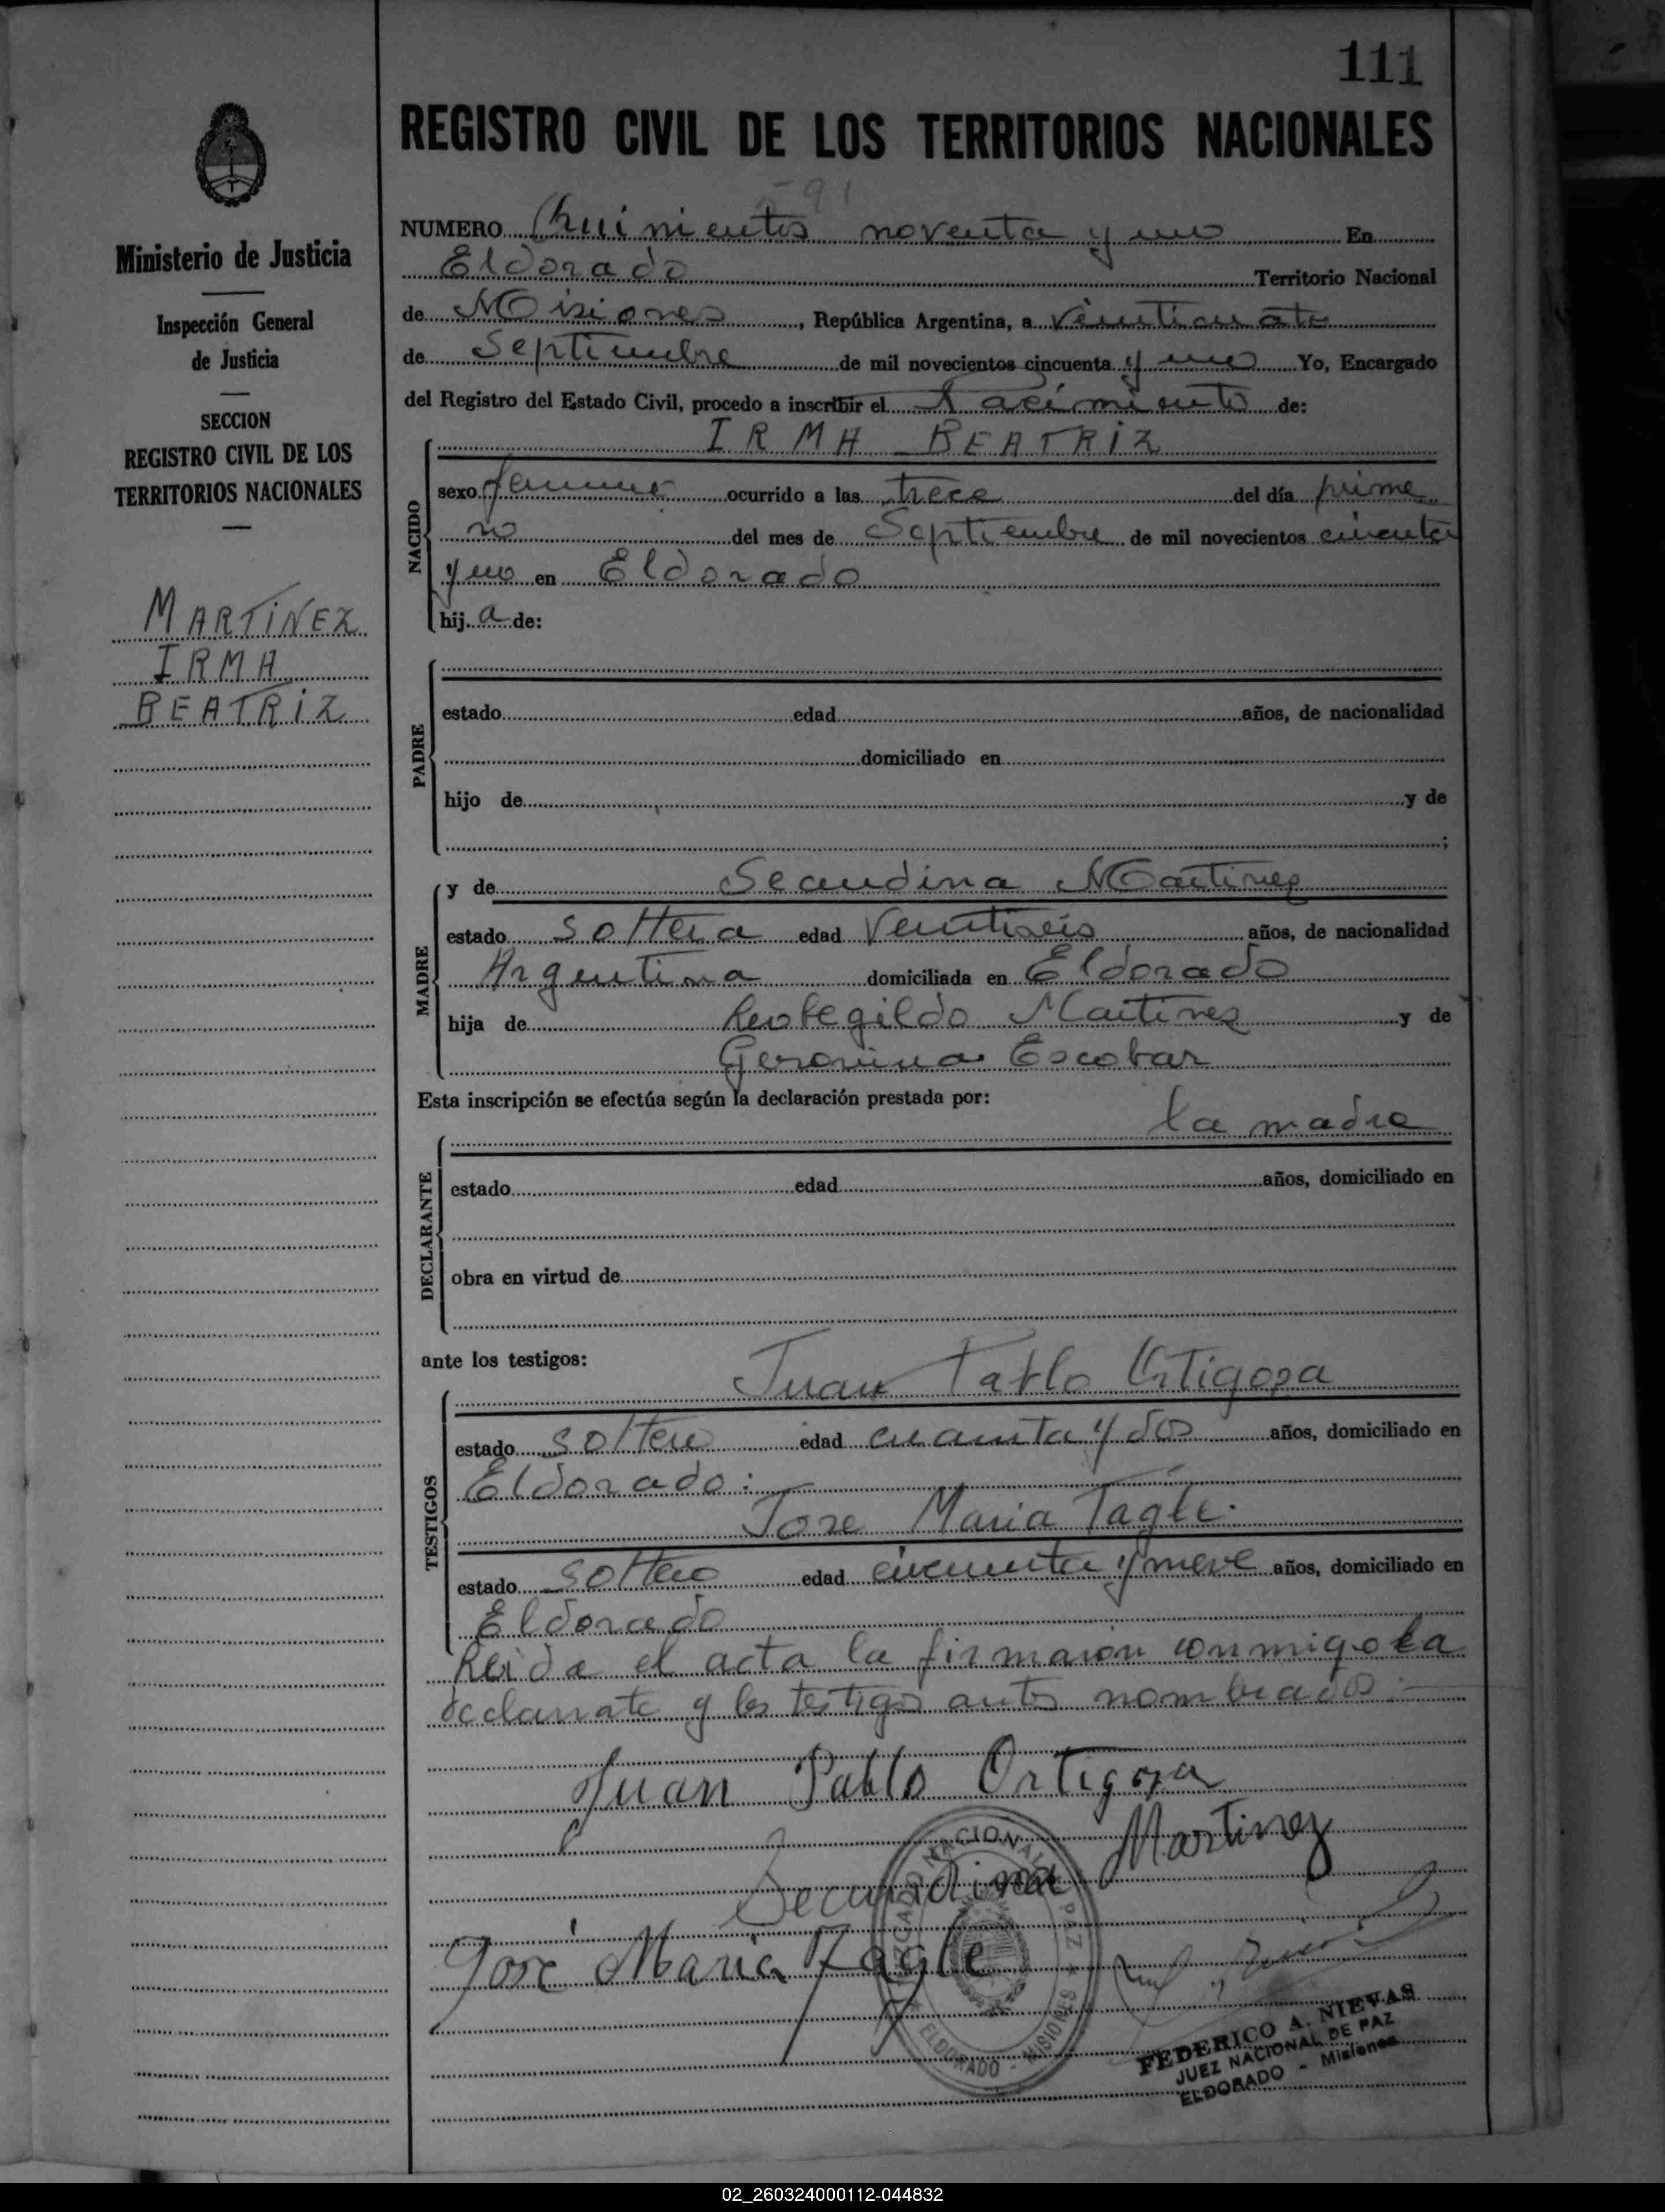 111
REGISTRO CIVIL DE LOS TERRITORIOS NACIONALES
Ministerio de Justicia
Inspección General
de Justicia
SECCION
REGISTRO CIVIL DE LOS
TERRITORIOS NACIONALES
MARTINEZ
IRMA
BEATRIZ
591
NUMERO Quinientos noventa y uno En
Eldorado Territorio Nacional
de Misiones, República Argentina, a veinticuatro
de Septiembre de mil novecientos cincuenta y uno Yo, Encargado
del Registro del Estado Civil, procedo a inscribir el Nacimiento de:
IRMA BEATRIZ
NACIDO
sexo femenino ocurrido a las trece del día prime
ro del mes de Septiembre de mil novecientos cincuenta
y uno en Eldorado
hija de:
PADRE
estado edad años, de nacionalidad
domiciliado en
hijo de y de
;
MADRE
y de Secundina Martinez
estado soltera edad Veintiseis años, de nacionalidad
Argentina domiciliada en Eldorado
hija de Martinez y de
Geronima Escobar
Esta inscripción se efectúa según la declaración prestada por:
la madre
DECLARANTE
estado edad años, domiciliado en
obra en virtud de
ante los testigos:
TESTIGOS
Juan Pablo Ortigoza
estado soltero edad cuarenta y dos años, domiciliado en
Eldorado:
Jose Maria Tagle.
estado soltero edad cincuenta y nueve años, domiciliado en
Eldorado
Leida el acta la firmaron conmigo la
declarante y los testigos antes nombrados:
Juan Pablo Ortigoza
Secundina Martinez
José Maria Tagle
JUZGADO NACIONAL PAZ
ELDORADO - MISIONES
FEDERICO A. NIEVAS
JUEZ NACIONAL DE PAZ
ELDORADO - Misiones
02_260324000112-044832